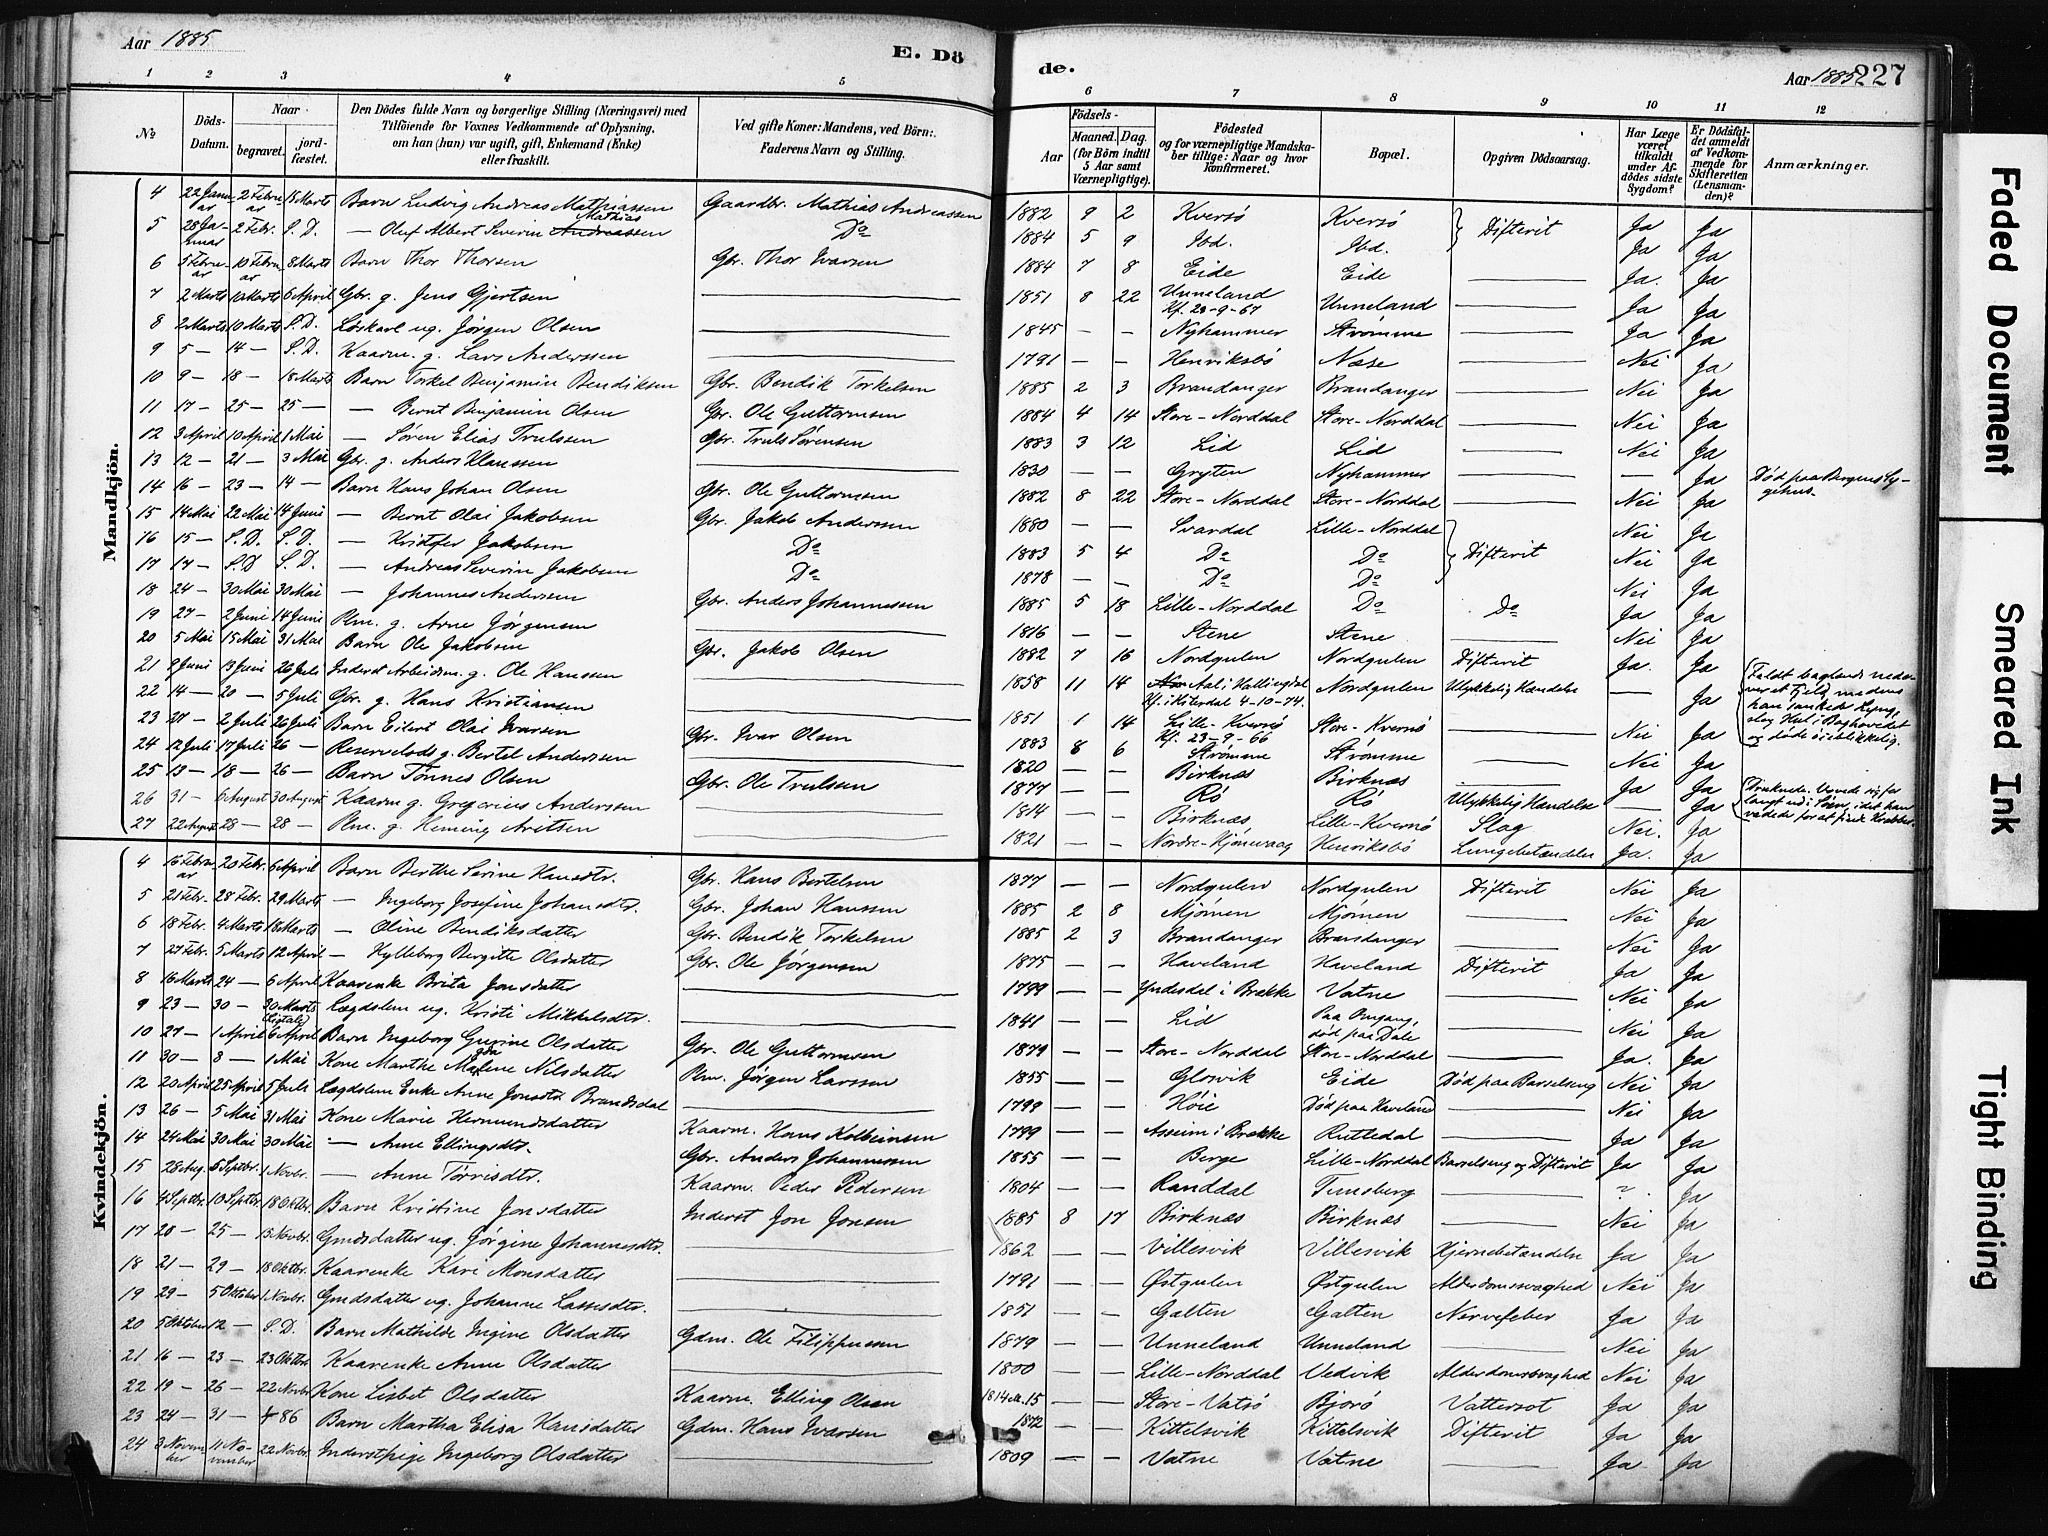 Aar 1885
E. Dö
de.
Aar 1885 227
1 2 3 4 5 6 7 8 9 10 11 12
No
Döds-Datum.
Naar
begravet.
jord-fæstet.
Den Dödes fulde Navn og borgerlige Stilling (Næringsvei) med
Tilföiende for Voxnes Vedkommende af Oplysning,
om han (hun) var ugift, gift, Enkemand (Enke)
eller fraskilt.
Ved gifte Koner: Mandens, ved Börn:
Faderens Navn og Stilling.
Födsels-
Aar
Maaned. Dag.
(for Börn indtil
5 Aar samt
Værnepligtige).
Födested
og for værnepligtige Mandska-
ber tillige: Naar og hvor
konfirmeret.
Bopæl.
Opgiven Dödsaarsag.
Har Læge
været
tilkaldt
under Af-
dödes sidste
Sygdom?
Er Dödsfal-
det anmeldt
af Vedkom-
mende for
Skifteretten
(Lensman-
den)?
Anmærkninger.
Mandkjön.
4 22 Januar 2 Februar 15 Marts Barn Ludvig Andreas Mathiassen Gaardbr. Mathias Andreassen 1882 9 2 Kversö Kversö Difterit Ja Ja
5 28 Januar 2 Febr. S. D. — Oluf Albert Severin Mathias Andreassen Do 1884 5 9 Ibd. Ibd. Ja Ja
6 5 Februar 10 Februar 8 Marts Barn Thor Thorsen Gbr. Thor Ivarsen 1884 7 8 Eide Eide — Ja. Ja
7 2 Marts 10 Marts 6 April Gbr. g. Jens Gjertsen — 1851 8 22 Unneland Kf. 29-9-67 Unneland — Ja Ja
8 2 Marts 10 Marts S. D. Löskarl ug. Jörgen Olsen — 1845 — — Nyhammer Strömme — Ja Ja
9 5 — 14 — S. D. Kaarm. g. Lars Anderssen — 1791 — — Henriksbö Næse — Nei Ja
10 9 — 18 — 18 Marts Barn Torkel Benjamin Bendiksen Gbr. Bendik Torkelsen 1885 2 3 Brandanger Brandanger — Nei Ja
11 17 — 25 — 25 — — Bernt Benjamin Olsen Gbr. Ole Guttormsen 1884 4 14 Store-Norddal Store-Norddal — Nei Ja
12 3 April 10 April 1 Mai — Sören Elias Trulssen Gbr. Truls Sörensen 1883 3 12 Lid Lid — Nei Ja
13 12 — 21 — 3 Mai Gbr. g. Anders Klaussen — 1830 — — Gryten Nyhammer — — Ja Död paa Bergens Sygehus.
14 16 — 23 — 14 — Barn Hans Johan Olsen Gbr. Ole Guttormsen 1882 8 22 Store-Norddal Store-Norddal — Nei Ja
15 14 Mai 22 Mai 14 Juni — Bernt Olai Jakobsen Gbr. Jakob Anderssen 1880 — — Svardal Lille-Norddal Difterit Nei Ja
16 15 — S. D. S. D. — Kristofer Jakobsen Do 1883 5 4 Do Do Nei Ja
17 17 — S. D S. D. — Andreas Severin Jakobsen Do 1878 — — Do Do Nei Ja
18 24 — 30 Mai 30 Mai — Johannes Andersen Gbr. Anders Johannessen 1885 5 18 Lille-Norddal Do Do Ja Ja
19 27 — 2 Juni 14 Juni Plm. g. Arne Jörgensen — 1816 — — Stene Stene — Nei Ja
20 5 Mai 15 Mai 31 Mai Barn Ole Jakobsen Gbr. Jakob Olsen 1882 7 16 Nordgulen Nordgulen Difterit Ja. Ja
21 9 Juni 13 Juni 26 Juli Inderst Arbeidsm. g. Ole Hanssen — 1858 11 14 Aal i Hallingdal Kf. i Hiterdal 4-10-74. Nordgulen Ulykkelig Hændelse — Ja Faldt baglænds nedover et Fjeld, medens han sankede Lyng, slog Hul i Baghovedet og döde öieblikkelig.
22 14 — 20 — 5 Juli Gbr. g. Hans Kristiansen — 1851 1 14 Lille-Kversö Kf. 23-9-66 Store-Kversö — Nei Ja
23 27 — 2 Juli 26 Juli Barn Eilert Olai Ivarsen Gbr. Ivar Olsen 1883 8 6 Strömme Strömme — Nei Ja
24 12 Juli 17 Juli 26 — Reservelods g. Bertel Anderssen — 1820 — — Birknæs Birknæs — Ja Ja
25 13 — 18 — 26 — Barn Tönnes Olsen Gbr. Ole Trulssen 1877 — — Rö Rö Ulykkelig Hændelse — Ja Druknede. Vovede sig for langt ud i Söen, idet han vadede for at finde Krabber.
26 31 — 6 August 30 August Kaarm g. Gregorius Anderssen — 1814 — — Birknæs Lille-Kversö Slag Nei. Ja
27 22 August 28 — 28 — Plm. g. Heming Aritsen — 1821 — — Nordre-Hjönevaag Henriksbö Lungebetændelse Ja. Ja
Kvindekjön.
4 16 Februar 20 Febr. 6 April Barn Berthe Serine Hansdtr. Gbr. Hans Bertelsen 1877 — — Nordgulen Nordgulen Difterit Nei Ja
5 21 Febr. 28 Febr. 29 Marts — Ingeborg Josefine Johansdtr. Gbr. Johan Hanssen 1885 2 8 Mjömen Mjömen — Nei Ja
6 18 Febr. 4 Marts 18 Marts — Oline Bendiksdatter Gbr. Bendik Torkelsen 1885 2 3 Brandanger Brandanger — Nei Ja
7 27 Febr. 5 Marts 12 April — Hylleborg Bergitte Olsdatter Gbr. Ole Jörgensen 1875 — — Haveland Haveland Difterit Ja Ja
8 16 Marts 24 — 6 April Kaarenke Brita Jonsdatter — 1799 — — Yndesdal i Brække Vatne — Nei Ja
9 23 — 30 — 30 Marts (Ligtale) Lægdslem ug. Kristi Mikkelsdtr. — 1841 — — Lid Paa Omgang, död paa Dale — Nei Ja
10 27 — 1 April 6 April Barn Ingeborg Gurine Olsdatter Gbr. Ole Guttormsen 1879 — — Store-Norddal Store-Norddal — Ja. Ja
11 30 — 3 — 1 Mai Kone Marthe Malene Nilsdatter Plm. Jörgen Larssen 1855 — — Glosvik Eide Död paa Barselseng Nei Ja
12 20 April 25 April 5 Juli Lægdslem Enke Anne Jonsdtr Brandsdal — 1799 — — Höie Död paa Haveland — Nei Ja
13 26 — 5 Mai 31 Mai Kone Marie Hermundsdatter Kaarm. Hans Kolbeinsen 1799 — — Asseim i Brække Rutledal — Ja Ja
14 24 Mai 30 Mai 30 Mai — Anne Ellingsdtr. Gbr. Anders Johannessen 1855 — — Berge Lille-Norddal Barselseng og Difterit Ja Ja
15 28 Aug. 6 Septbr. 1 Novbr. — Anne Törrisdtr. Kaarm. Peder Pedersen 1804 — — Randdal Tunsberg — ? Ja
16 4 Septbr. 10 Septbr 18 Oktbr. Barn Kristine Jonsdatter Inderst Jon Jonsen 1885 8 17 Birknæs Birknæs — Nei Ja
17 20 — 25 — 15 Novbr. Gmdsdatter ug. Jörgine Johannesdtr. — 1862 — — Villesvik Villesvik Hjernebetændelse Ja Ja
18 21 — 29 — 18 Oktbr. Kaarenke Kari Monsdatter — 1791 — — Östgulen Östgulen Alderdomssvaghed Nei Ja
19 29 — 5 Oktober 1 Novbr. Gmdsdatter ug. Johanne Lassesdtr. — 1851 — — Galten Galten Nervefeber Ja Ja
20 5 Oktober 12 — S. D. Barn Mathilde Ingine Olsdatter Gdm. Ole Filippussen 1879 — — Unneland Unneland — Nei Ja
21 16 — 23 — 23 Oktbr Kaarenke Anne Olsdatter — 1800 — — Lille-Norddal Vedvik Alderdomssvaghed Nei Ja
22 19 — 26 — 22 Novbr Kone Lisbet Olsdatter Kaarm. Elling Olsen 1814 — — Store-Vatsö Bjorö Vattersot Ja Ja
23 24 — 31 — 86 Barn Martha Elisa Hansdatter Gdm. Hans Ivarsen 1872 — — Kittelsvik Kittelsvik Difterit Ja Ja
24 3 November 11 November 22 Novbr. Inderstpige Ingeborg Olsdatter — 1809 — — Vatne Vatne — Ja Ja
Faded Document
Smeared Ink
Tight Binding